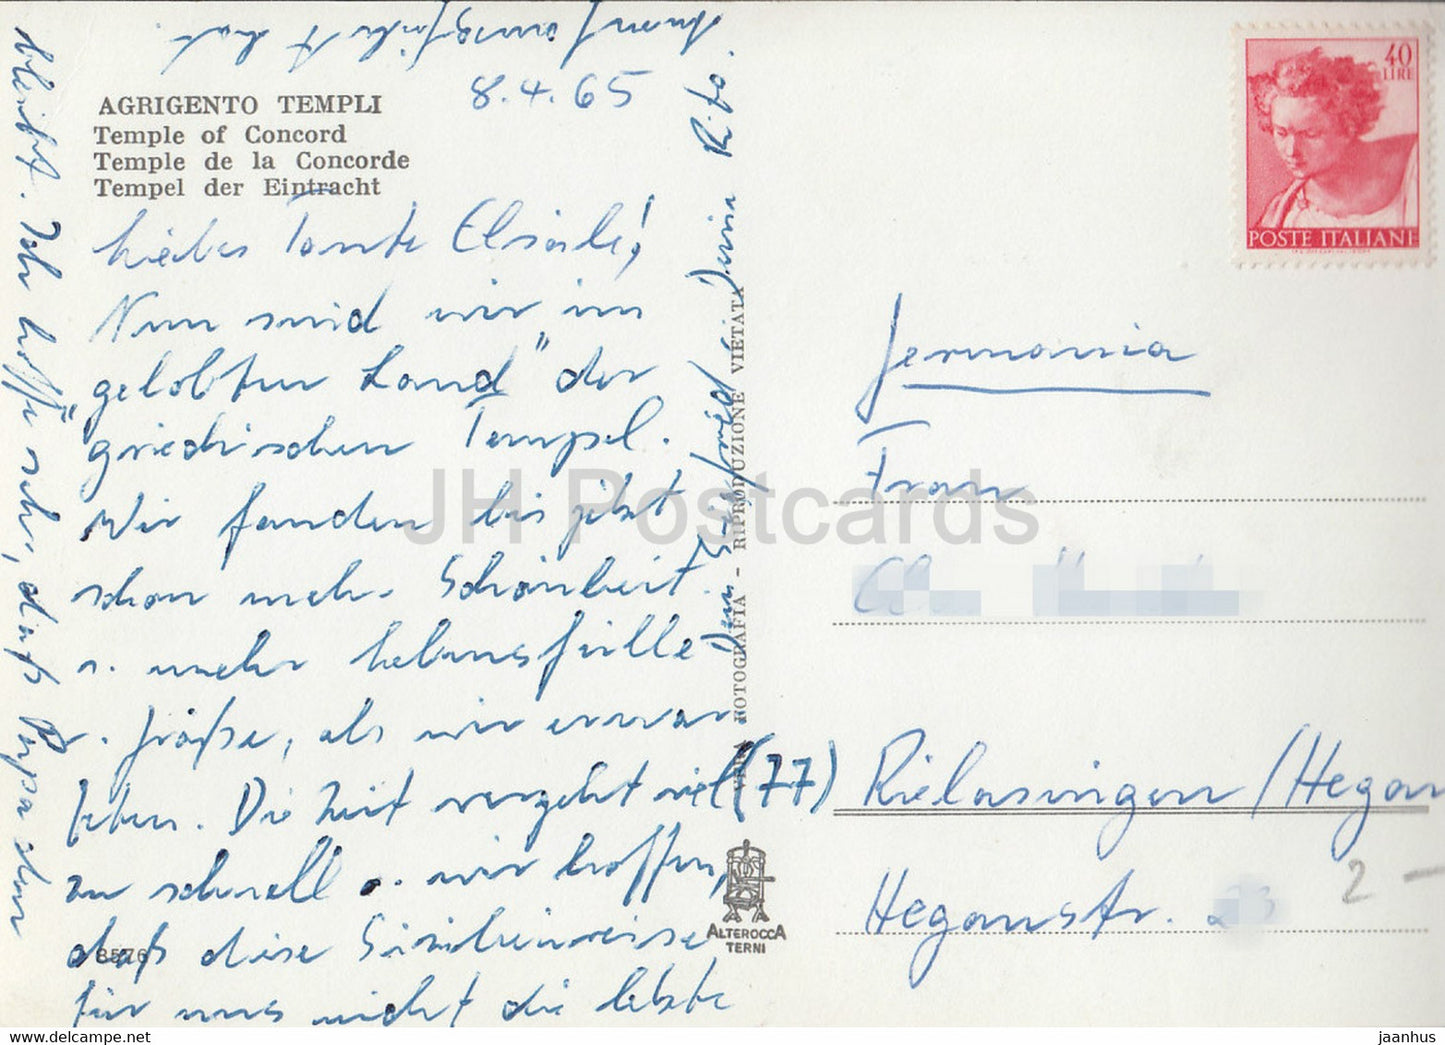 AGRIGENTO TEMPLI
Temple of Concord
Temple de la Concorde
Tempel der Eintracht
8.4.65
Liebes Tante Elsele!
Nun sind wir im
"gelobten Land" der
griechischen Tempel.
Wir fanden bis jetzt
schon mehr Schönheit
u. mehr Lebensfülle
u. Größe, als wir erwar
teten. Die Zeit vergeht viel
zu schnell u. wir hoffen,
daß diese Sizilienreise
für uns nicht die letzte
bleibt. Ich hoffe sehr, daß Papa dem
hat.
Rita.
FOTOGRAFIA - RIPRODUZIONE VIETATA
8576
ALTEROCCA
TERNI
40
LIRE
POSTE ITALIANE
Germania
Frau
(77) Rielasingen/Hegau
Hegaustr.
2 -
JH Postcards
bleidoo.net
jaanhus